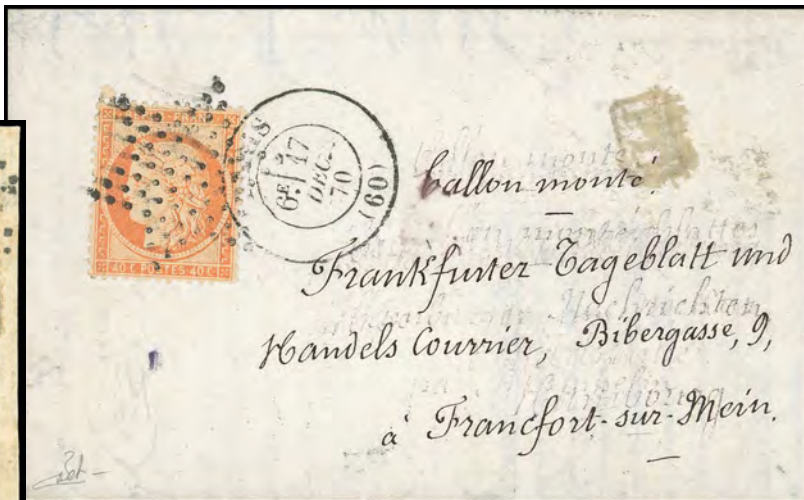 40 C POSTES 40 C
PARIS
6E 17
DEC.
70
(60)
ballon monté.
Frankfurter Tageblatt und
Handels Courrier, Bibergasse, 9,
à Francfort-sur-Mein.